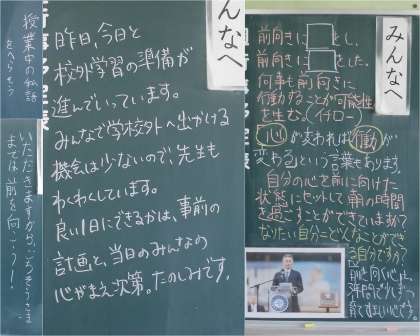 授業中の私語
をへらそう
いただきますから、ごちそうさま
までは前を向こう!
みんなへ
昨日、今日と
校外学習の準備が
進んでいっています。
みんなで学校外へ出かける
機会は少ないので、先生も
わくわくしています。
良い1日にできるかは、事前の
計画と、当日のみんなの
心がまえ次第。たのしみです。
みんなへ
前向きに□をし、
前向きに□をした。
何事も前向きに
行動することが可能性
を生む。(イチロー)
心が変われば働が
変わるという言葉もあります。
自分の心を前に向けた
状態にセットして朝の時間
を過ごすことができていますか?
なりたい自分にどんなことができ
る自分ですか?
前に向く心に
育てましょう。